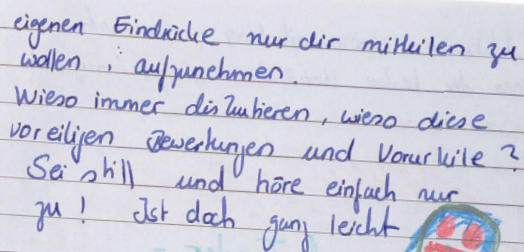 eigenen Eindrücke nur dir mitteilen zu
wollen, aufzunehmen.
Wieso immer diskutieren, wieso diese
voreiligen Bewertungen und Vorurteile?
Sei still und höre einfach nur
zu! Ist doch ganz leicht